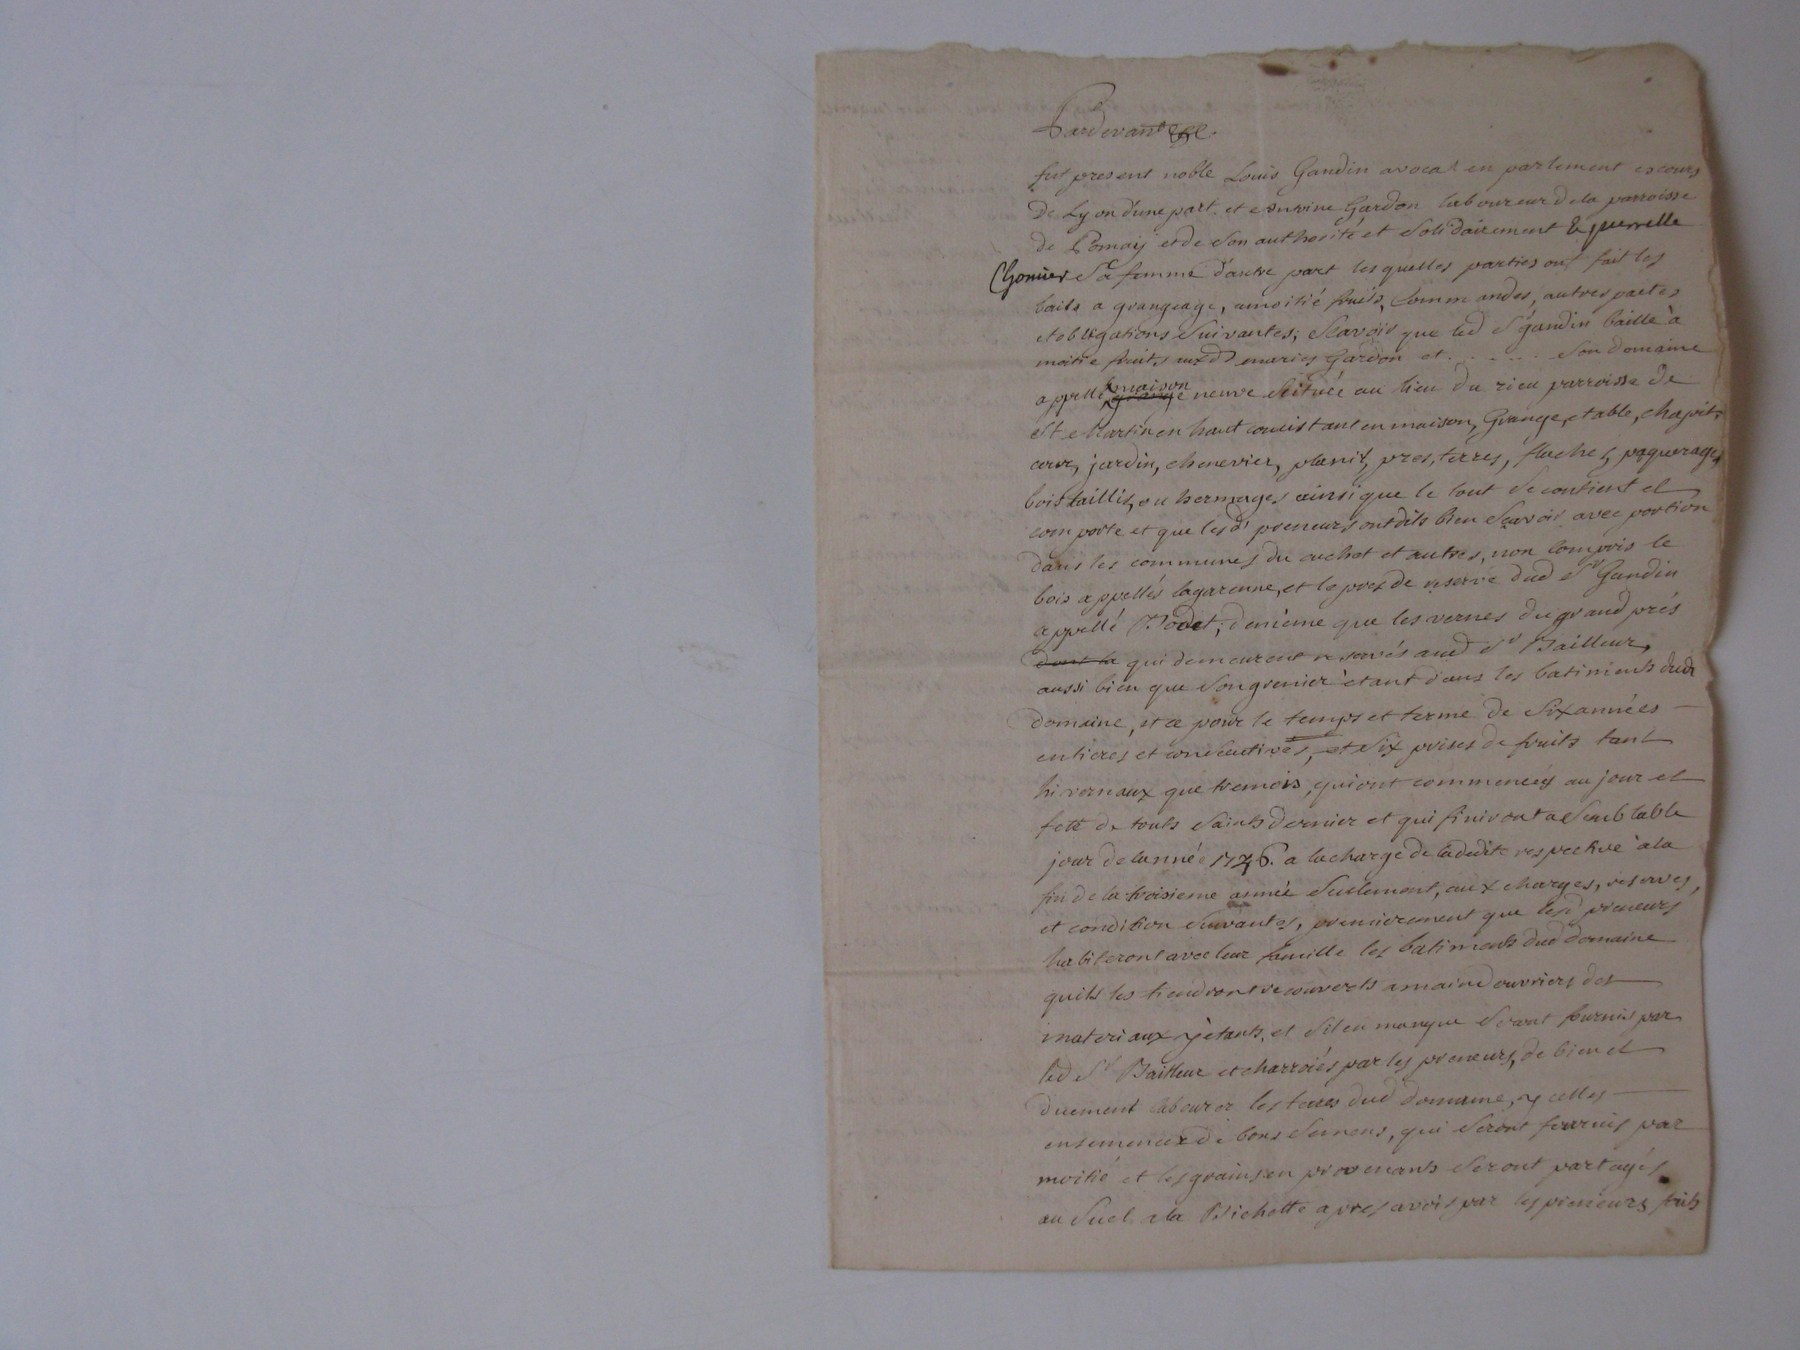 Pardevant &c.
fut present noble Louis Gandin avocat en parlement et cours
de Lyon d'une part. et Gardon laboureur de la parroisse
de Pomaÿ et de son authorité et solidairement
Chonier Sa femme d'autre part les quelles parties ont fait les
bails a grangeage, amoitié fruits, Commandes, autres pactes
et obligations Suivantes; Scavoir que led Sr gandin baille à
moitié fruits auxd maries Gardon et . . . . . . Son domaine
appellé maison neuve Scituée au lieu du rieu parroisse de
St Martin en haut consistant en maison, Grange, etable, chapit,
cour, jardin, chenevier, planit, pres, terres, flaches, paquerages
bois taillis, ou hermages ainsi que le tout Se contient et
comporte et que lesd preneurs ont dits bien Scavoir avec portion
dans les communes du cuchot et autres, non Compris le
bois appellés lagarenne, et le prés de reserve dud Sr Gandin
appellé ; demême que les vernes du grand prés
qui demeurent reservés aud Sr Bailleur,
aussi bien que Son grenier etant dans les batiments dud
domaine, et ce pour le temps et terme de Six années
entieres et consecutives, et Six prises de fruits tant
hivernaux que tremois, qui ont commencés au jour et
fete de touts Saints dernier et qui finiront a Semblable
jour de lannée a la charge de la dedite respective à la
fin de la troisieme année Seulement, aux charges, reserves,
et condition Suivantes, premierement que lesd preneurs
habiteront avec leur famille les batiments dud domaine
quils les tiendront recouverts a main d'ouvriers des
materiaux ÿ etants, et Sil en manque Seront fournis par
led Sr Bailleur et charroiés par les preneurs, de bien et
duement labourer les terres dud domaine, ycelles
ensemencer de bons Semens, qui Seront fournies par
moitié et les grains en provenants Seront partagés
au Suel a la Bichette apres avoir par les preneurs faits